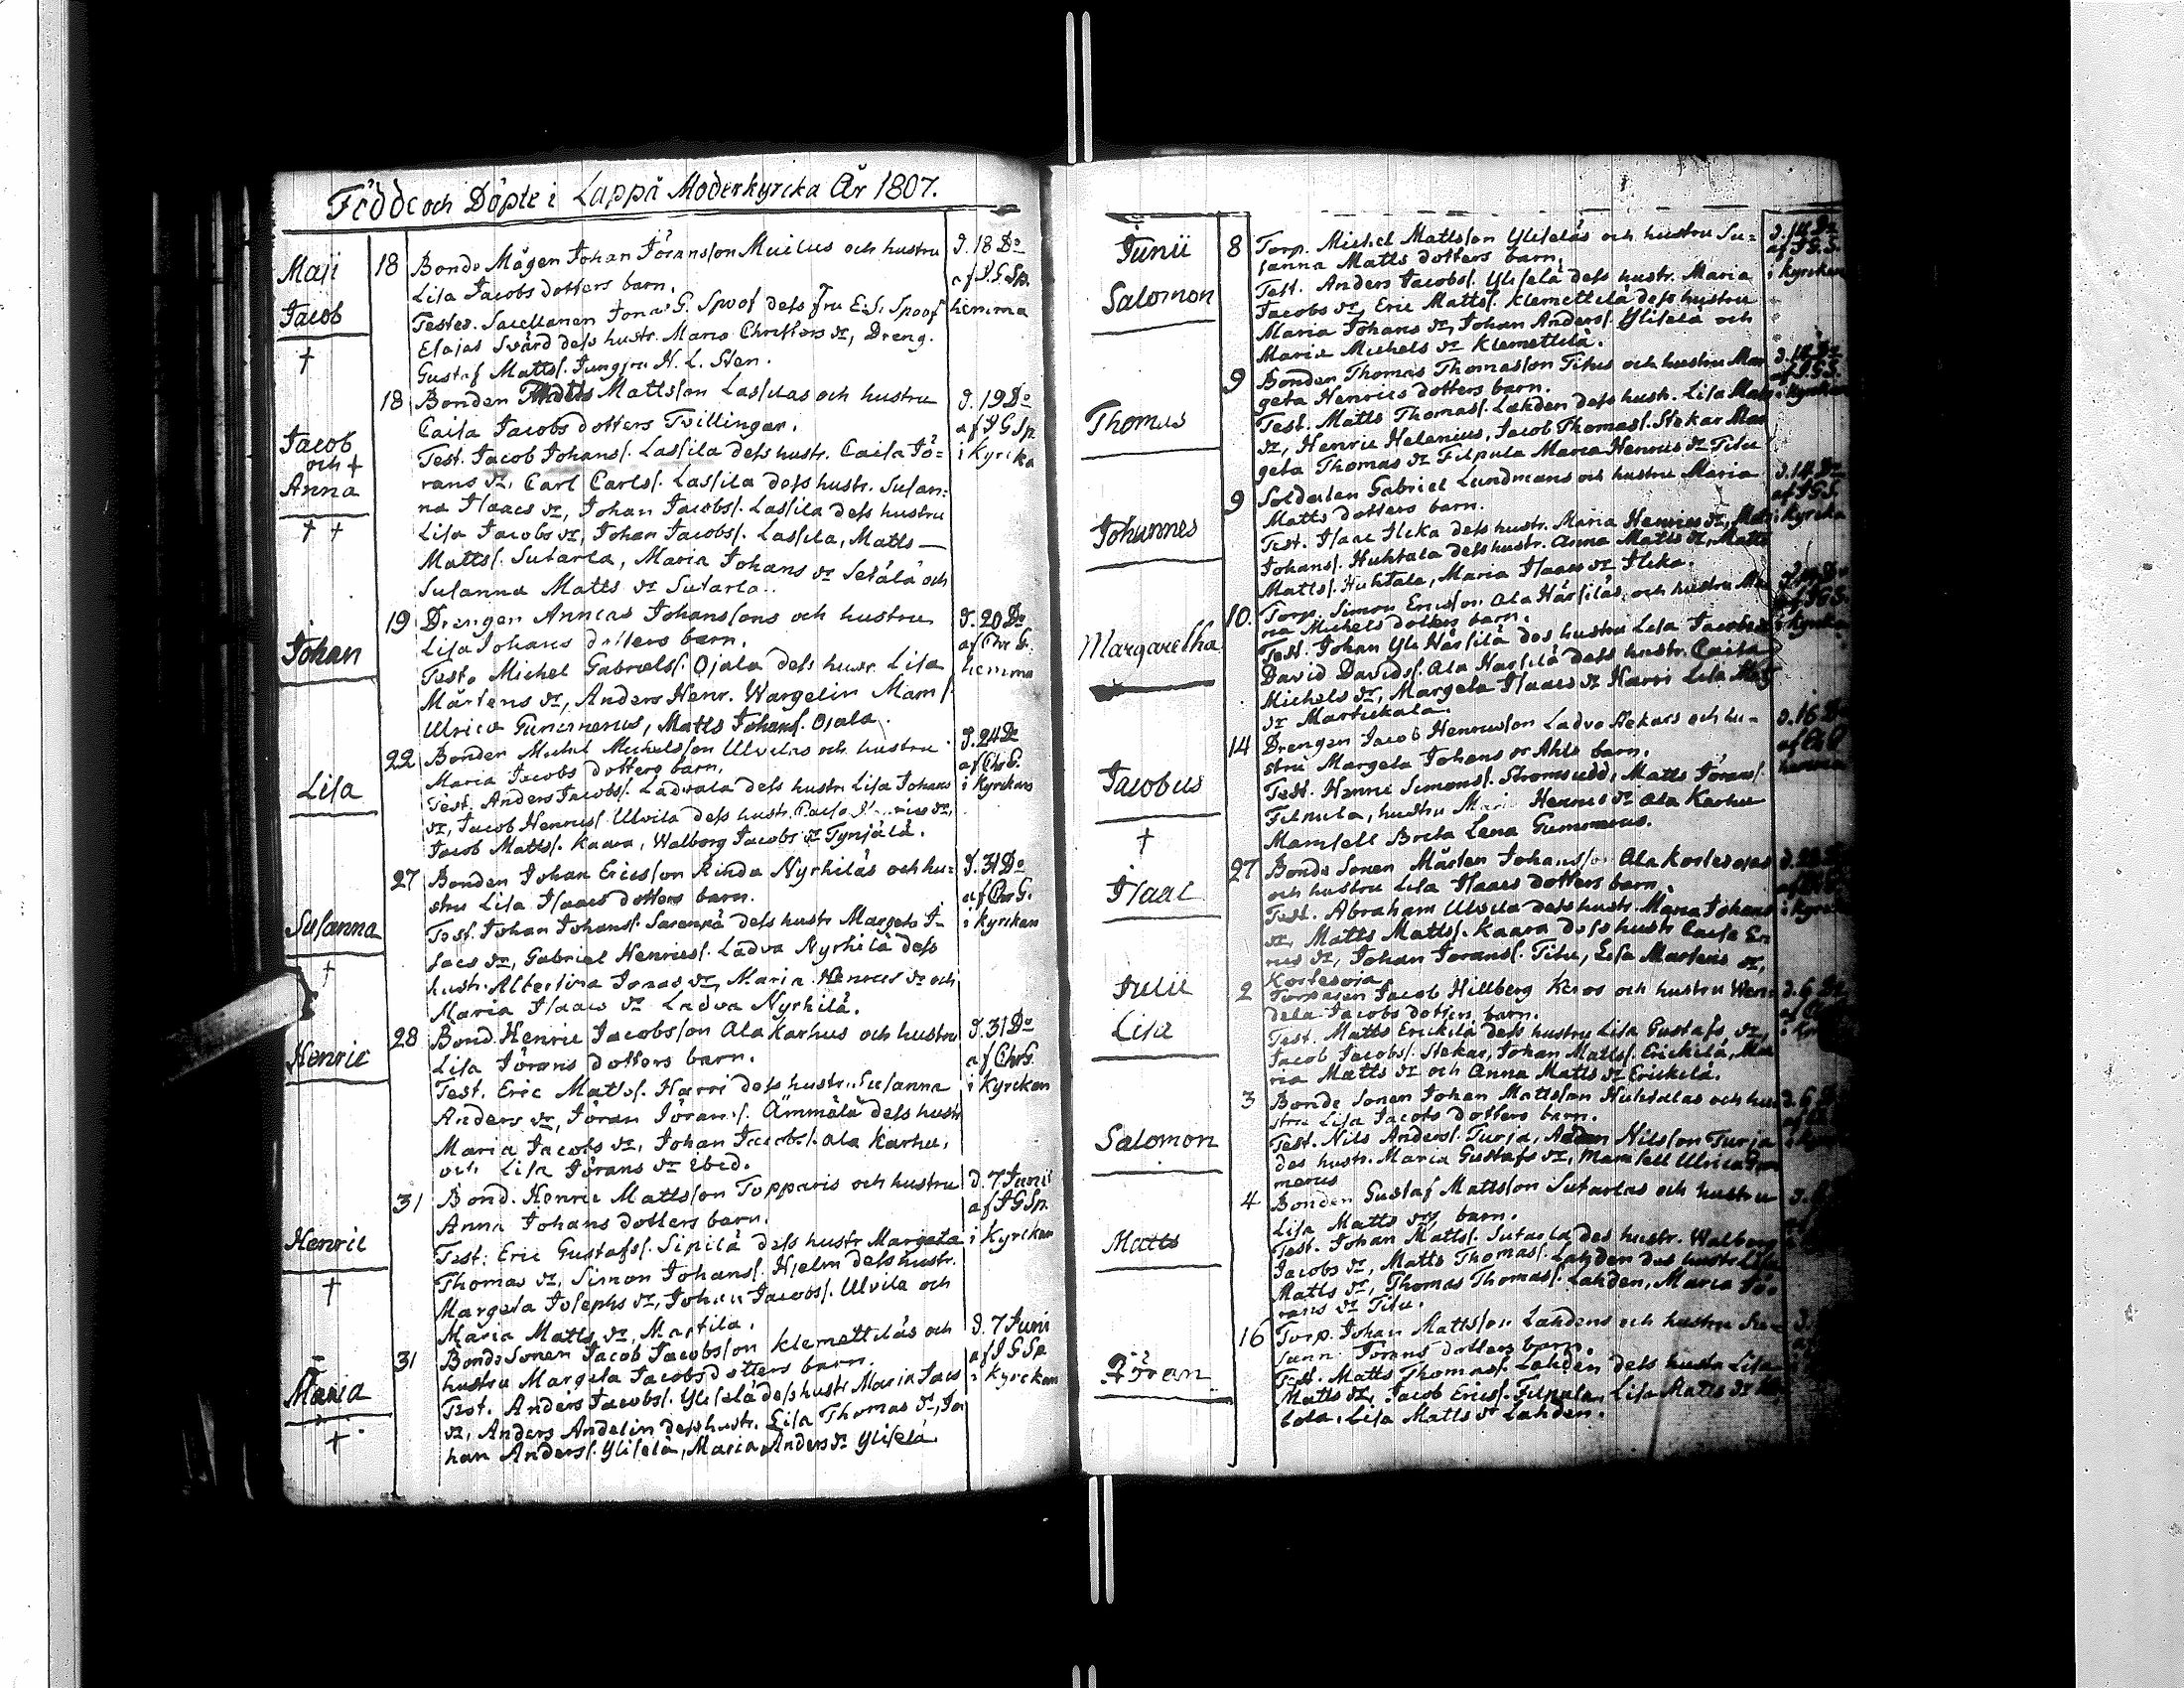 Födde och Döpte i Lappå Moderkyrcka År 1807.
Maji 18 Bonde Mågen Johan Jöransson och hustru d. 18 Do
Lisa Jacobs dotters barn. af J G Sp.
Jacob Testes. Sacellanen Jonas G. Spoof dess Fru E. S. Spoof hemma
† Elajas Svärd dess hustr. Maria Christers dr, Dreng.
Gustaf Matts/. Jungfru H. L. Sten.
18 Bonden Matts Mattsson Lassilas och hustru d. 19 Do
Caisa Jacobs dotters Tvillingar. af J G Sp.
Jacob Test. Jacob Johans/. Lassila dess hustr. Caisa Jö= i Kyrcka
och †
Anna rans dr, Carl Carls/. Lassila dess hustr. Susan=
na Isaacs dr, Johan Jacobs/. Lassila dess hustru
† † Lisa Jacobs dr, Johan Jacobs/. Lassila, Matts
Matts/. Sutarla, Maria Johans dr Setälä och
Susanna Matts dr Sutarla.
19 Drengen Annias Johanssons och hustru d. 20 Do
Johan Lisa Johans dotters barn. af Chr G.
Test. Michel Gabriels/. Ojala dess hustr. Lisa hemma
Mårtens dr, Anders Henr. Wargelin Mams/.
Ulrica Gummerus, Matts Johans/. Ojala.
22 Bonden Michel Michelsson Ulvilas och hustru d. 24 Do
Lisa Maria Jacobs dotters barn. af Chr G.
Test. Anders Jacobs/. Ladvala dess hustr. Lisa Johans i Kyrckan
dr, Jacob Henrics/. Ulvila dess hustr. Caisa
Jacob Matts/. Kaara, Walborg Jacobs dr Tynjälä.
27 Bonden Johan Ericsson Rinda Nyrhiläs och hu= d. 31 Do
stru Lisa Isaacs dotters barn. af Chr G.
Susanna Test. Johan Johans/. Sarenpä dess hustr Margeta I= i Kyrckan
† sacs dr, Gabriel Henrics/. Ladva Nyrhilä dess
hustr. Albertina Jonas dr, Maria Henrics dr och
Maria Isaacs dr Ladva Nyrhilä.
28 Bond. Henric Jacobsson Ala Karhus och hustru d. 31 Do
Henric Lisa Jörans dotters barn. af Chr G.
Test. Eric Matts/. Harri dess hustr. Susanna i Kyrckan
Anders dr, Jöran Jörans/. Ämmälä dess hustr
Maria Jacobs dr, Johan Jacobs/. Ala Karhu,
och Lisa Jörans dr ibid.
31 Bond. Henric Mattsson Topparis och hustru d. 7 Junii
Anna Johans dotters barn. af J G Sp.
Henric Test. Eric Gustafs/. Sipilä dess hustr Margeta i Kyrckan
† Thomas dr, Simon Johans/. Hjelm dess hustr.
Margeta Josephs dr, Johan Jacobs/. Ulvila och
Maria Matts dr, Martila.
31 Bonde Sonen Jacob Jacobsson Klemettiläs och d. 7 Juni
Maria hustru Margeta Jacobs dotters barn. af J G Sp
† Test. Anders Jacobs/. Yliselä dess hustr Maria Jacs i Kyrckan
dr, Anders Andelin dess hustr. Lisa Thomas dr, Jo
han Anders/. Ylisela, Maria Anders dr Ylisela
Junii 8 Torp. Michel Mattsson Yliseläs och hustru Su= d. 14 Do
sanna Matts dotters barn. af J G S.
Salomon Test. Anders Jacobs/. Ylisela dess hustr. Maria i Kyrckan
Jacobs dr, Eric Matts/. Klemettilä dess hustru
Maria Johans dr, Johan Anders/. Ylisela och
Maria Michels dr Klemettilä.
9 Bonden Thomas Thomasson Titus och hustru Mar d. 14 Do
geta Henrics dotters barn. af J G S.
Thomas Test. Matts Thomas/. Lahden dess hustr. Lisa Matts i Kyrckan
dr, Henric Helenius, Jacob Thomas/. Stekar Mar
geta Thomas dr Filpula Maria Henrics dr Titu
9 Soldaten Gabriel Lundmans och hustru Maria d. 14 Do
Matts dotters barn. af J G S.
Johannes Test. Isaac Ilcka dess hustr. Maria Henrics dr, i Kyrcka
Johans/. Huhtala dess hustr. Anna Matts dr, Matts
Matts/. Huhtala, Maria Isaacs dr Ilcka.
10. Torp. Simon Ericsson Ala Härsiläs och hustru Ma
ria Michels dotters barn. af J G S.
Margaretha Test. Johan Yli Härsilä des hustru Lisa Jacobs dr i Kyrckan
David Davids/. Ala Harsilä dess hustr. Caisa
Michels dr, Margeta Isaacs dr Harri Lisa
dr Martickala.
14 Drengen Jacob Henricsson Ladva Pekars och hu= d. 16 Do
stru Margeta Johans dr Ahls barn.
Jacobus Test. Henric Simons/. Stromsudd, Matts Jörans/. hemma
† Filpula, hustru Maria Henrics dr Ala Karhu
Mamsell Breta Lena Gummerus.
27 Bonde Sonen Mårten Johansson Ala Kortesojas
Isaac och hustru Lisa Isaacs dotters barn.
Test. Abraham Ulvila dess hustr. Maria Johans i Kyrckan
dr, Matts Matts/. Kaara dess hustr Caisa En
rics dr, Johan Jörans/. Titu, Lisa Martens dr,
Kortesoja
Julii 2 Torparen Jacob Hillberg Keros och hustru Wen= d. 6 Do
dela Jacobs dotters barn.
Lisa Test. Matts Erickilä dess hustru Lisa Gustafs dr,
Jacob Jacobs/. Stekar, Johan Matts/. Erickilä, Ma
ria Matts dr och Anna Matts dr Erickilä.
3 Bonde Sonen Johan Mattsson Huhtalas och hus d. 6
stru Lisa Jacobs dotters barn.
Salomon Test. Nils Anders/. Turja, Anders Nilsson Turja
des hustr. Maria Gustafs dr, Mamsell Ulrica Gum
merus
4 Bonden Gustaf Mattsson Sutarlas och hustru
Lisa Matts barn.
Matts Test. Johan Matts/. Sutarla des hustr. Walborg
Jacobs dr, Matts Thomas/. Lahden des hustr Lisa
Matts dr, Thomas Thomas/. Lahden, Maria Jö=
rans dr Titu.
16 Torp. Johan Mattsson Lahdens och hustru Su=
sann Jörans dotters barn.
Jöran Test. Matts Thomas/. Lahden dess hustru Lisa
Matts dr, Jacob Erics/. Filpula, Lisa Matts dr
Lola, Lisa Matts dr Lahden.